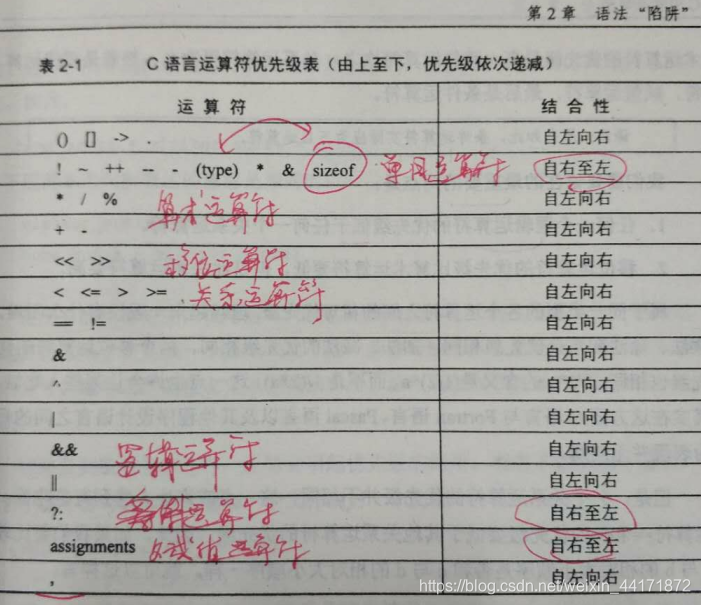 第 2 章 语法“陷阱”
表 2-1 C 语言运算符优先级表（由上至下，优先级依次递减）
运算符 结合性
() [] -> . 自左向右
! ~ ++ -- - (type) * & sizeof 单目运算符 自右至左
* / % 算术运算符 自左向右
+ - 自左向右
<< >> 移位运算符 自左向右
< <= > >= 关系运算符 自左向右
== != 自左向右
& 自左向右
^ 自左向右
| 自左向右
&& 逻辑运算符 自左向右
|| 自左向右
?: 条件运算符 自右至左
assignments 赋值运算符 自右至左
, 自左向右
https://blog.csdn.net/weixin_44171872